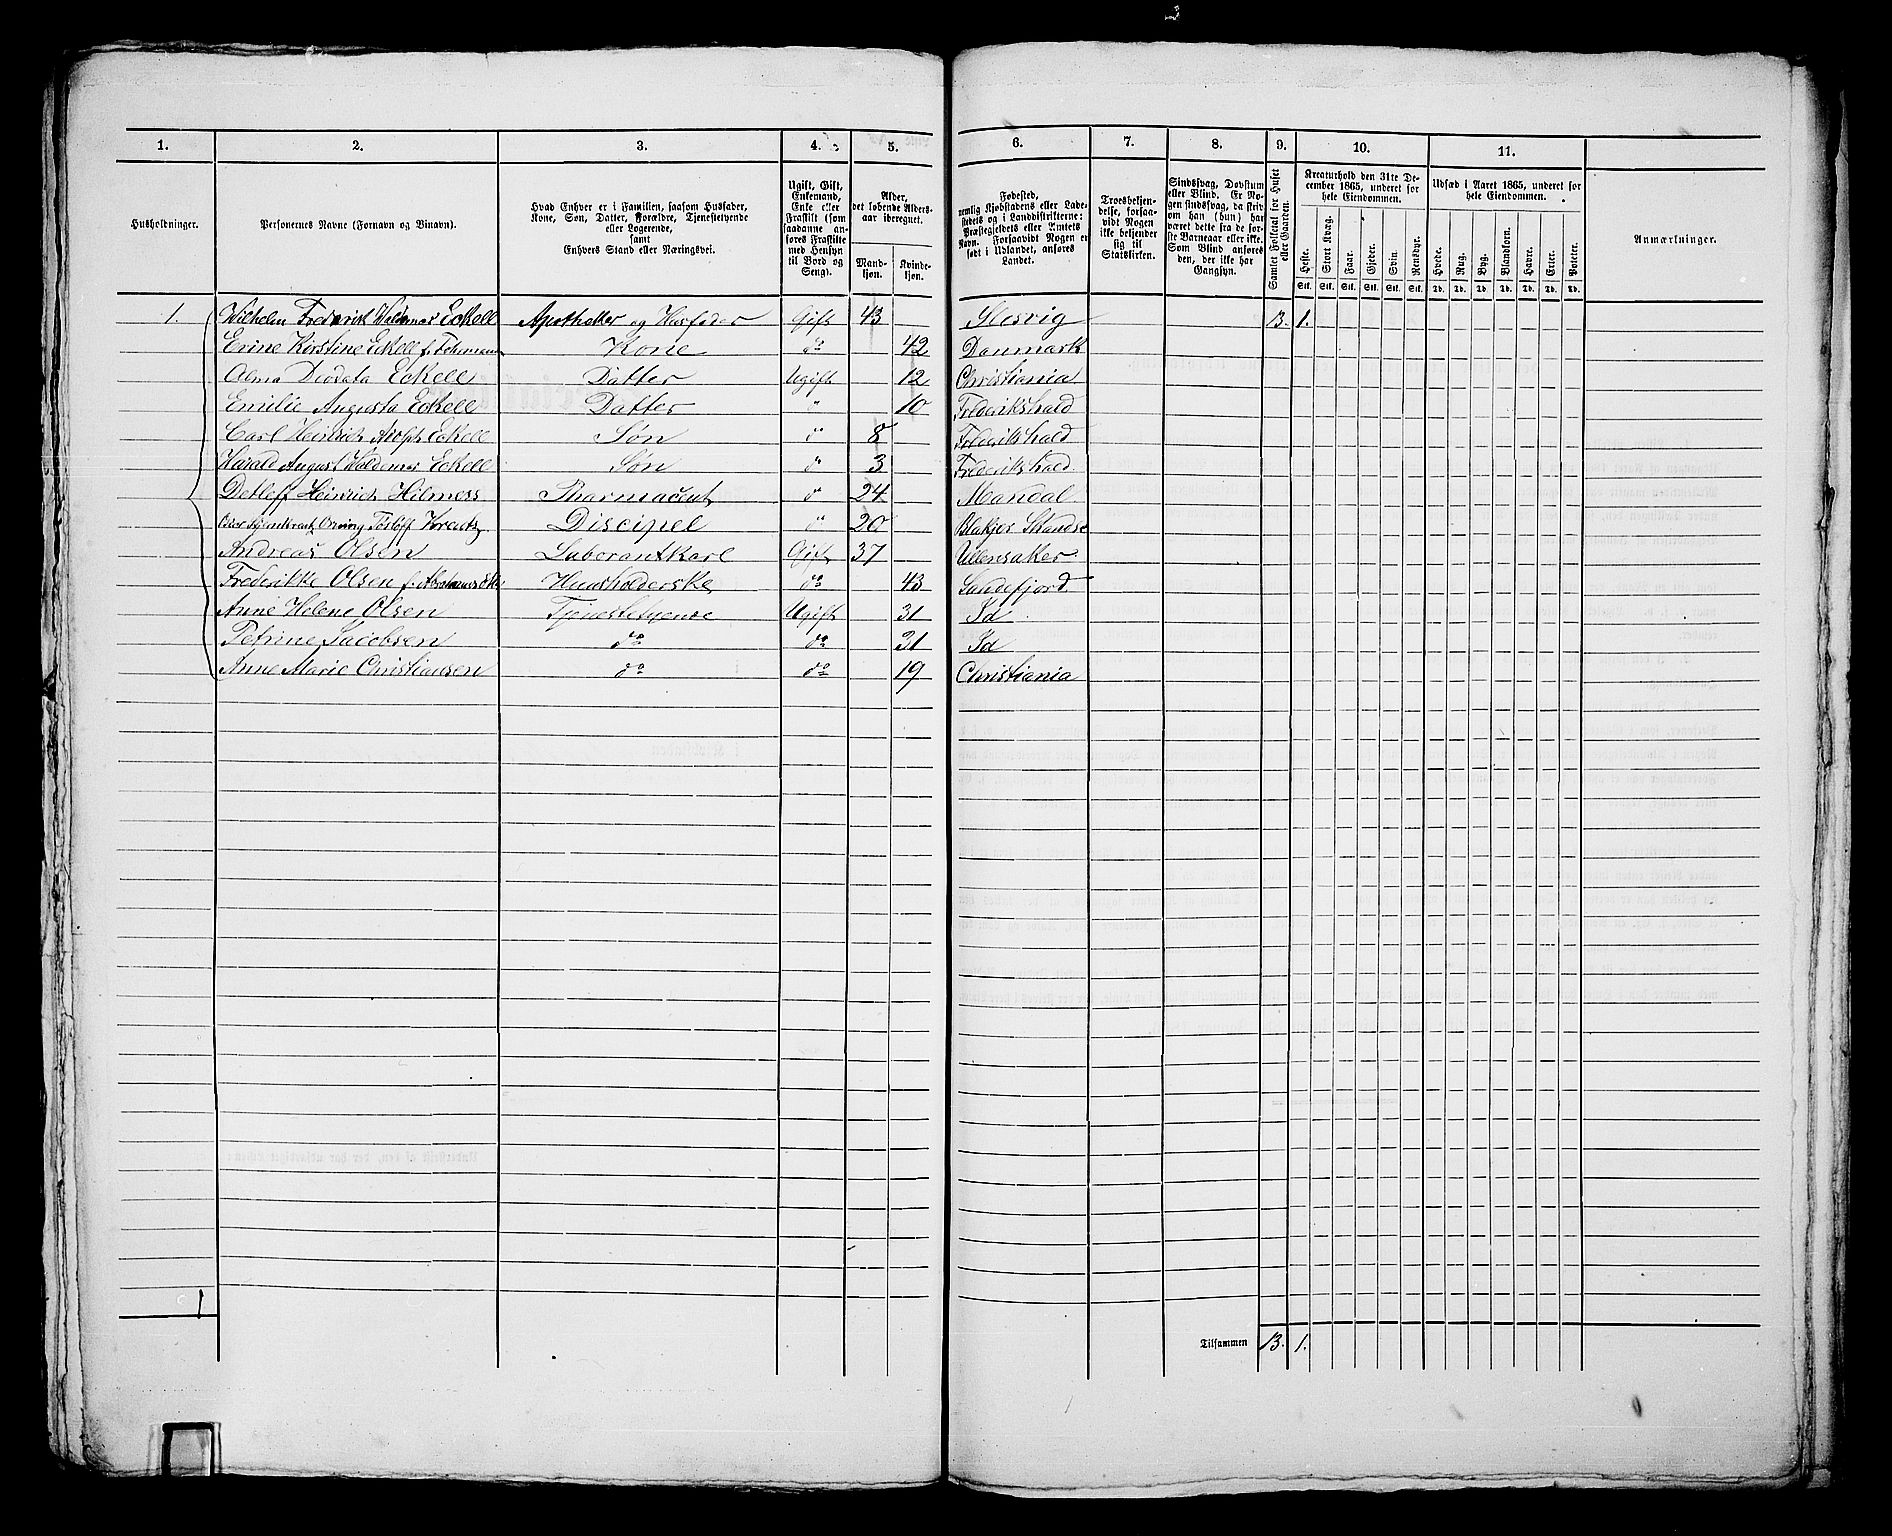 1. 2. 3. 4. 5. 6. 7. 8. 9. 10. 11.
Husholdninger.
Personernes Navne (Fornavn og Binavn).
Hvad Enhver er i Familien, saasom Husfader,
Kone, Søn, Datter, Forældre, Tjenestetyende
eller Logerende,
samt
Enhvers Stand eller Næringsvei.
Ugift, Gift,
Enkemand,
Enke eller
Fraskilt (som
saadanne an-
føres Fraskilte
med Hensyn
til Bord og
Seng).
Alder,
det løbende Alders-
aar iberegnet.
Mand-
kjøn.
Kvinde-
kjøn.
Fødested,
nemlig Kjøbstadens eller Lade-
stedets og i Landdistrikterne:
Præstegjeldets eller Amtets
Navn. Forsaavidt Nogen er
født i Udlandet, anføres
Landet.
Troesbekjen-
delse, forsaa-
vidt Nogen
ikke bekjender
sig til
Statskirken.
Sindssvag, Døvstum
eller Blind. Er No-
gen sindssvag, da skriv
om han (hun) har
været dette fra de før-
ste Barneaar eller ikke.
Som Blind anføres
den, der ikke har
Gangsyn.
Samlet Folketal for Huset
eller Gaarden.
Kreaturhold den 31te De-
cember 1865, underet for
hele Eiendommen.
Heste. Stort Kvæg. Faar. Gjeder. Svin. Rensdyr.
Stk. Stk. Stk. Stk. Stk. Stk.
Udsæd i Aaret 1865, underet for
hele Eiendommen.
Hvede. Rug. Byg. Blandkorn. Havre. Erter. Poteter.
Td. Td. Td. Td. Td. Td. Td.
Anmærkninger.
1. Wilhelm Frederik Waldemar Eckell Apotheker og Husfader Gift 43 Slesvig 13. 1.
Erine Kirstine Eckell f. Kone do 42 Danmark
Alma Deodata Eckell Datter Ugift 12 Christiania
Emilie Augusta Eckell Datter " 10 Frederikshald
Carl Heinrich Adolph Eckell Søn do 8 Frederikshald
Harald August Waldemar Eckell Søn do 3 Frederikshald
Detleff Heinrich Hilmers Pharmaceut do 24 Mandal
Torloff Discipel do 20 Blakjer Skandse
Andreas Olsen Laborantkarl Gift 37 Ullensaker
Frederikke Olsen f. Huusholderske do 43 Sandefjord
Anne Helene Olsen Tjenestetyende Ugift 31 Id
Petrine Jacobsen do do 21 Id
Anne Marie Christiansen do do 19 Christiania
1
Tilsammen 13. 1.